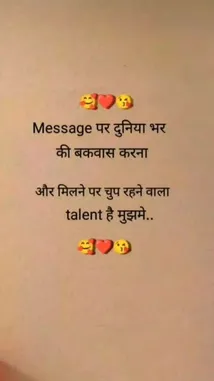 🥰❤️😘
Message पर दुनिया भर
की बकवास करना
और मिलने पर चुप रहने वाला
talent है मुझमे..
🥰❤️😘